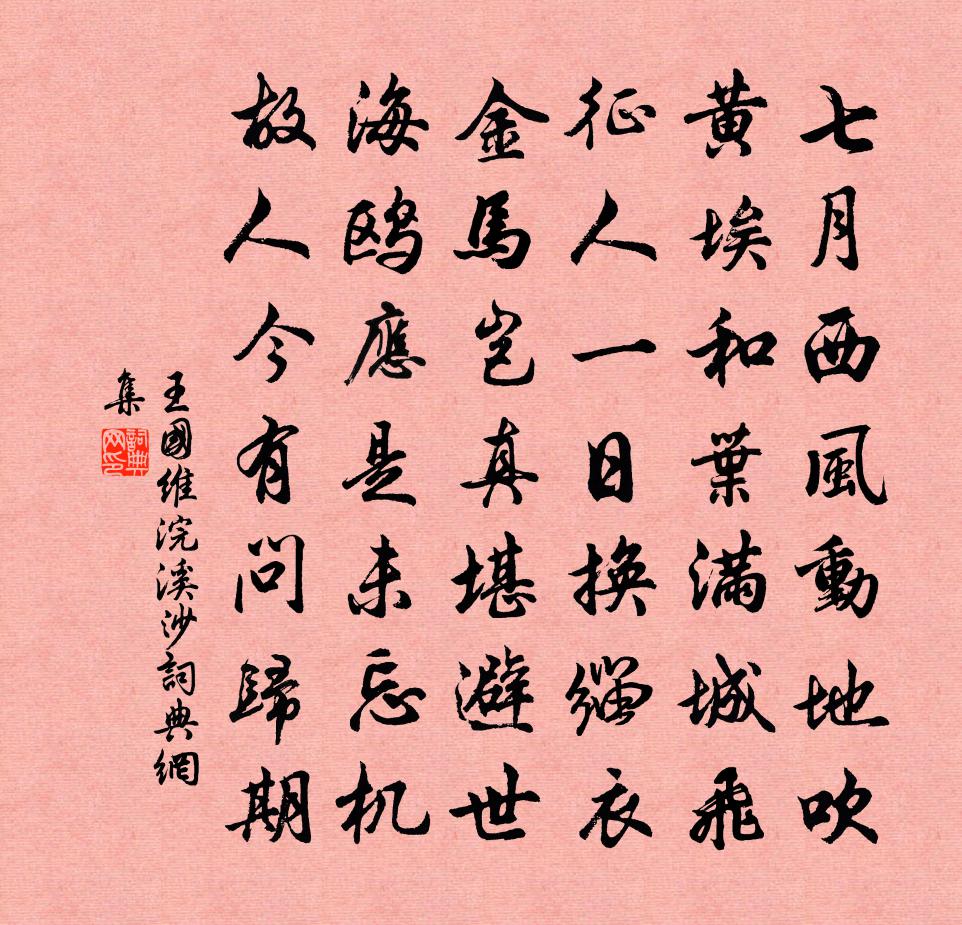 七月西風動地吹
黄埃和葉滿城飛
征人一日換緇衣
金馬豈真堪避世
海鷗應是未忘机
故人今有問歸期
王國維浣溪沙詞典網
集
詞典
网印